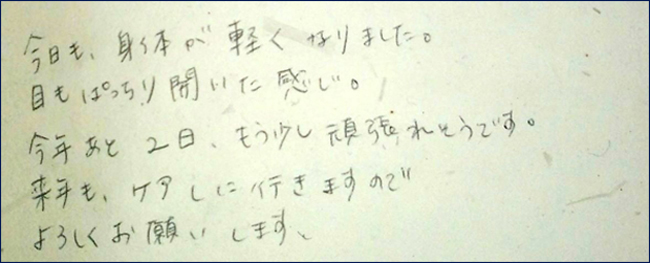 今日も、身体が軽くなりました。
目もぱっちり開いた感じ。
今年あと2日、もう少し頑張れそうです。
来年も、ケアしに行きますので
よろしくお願いします、